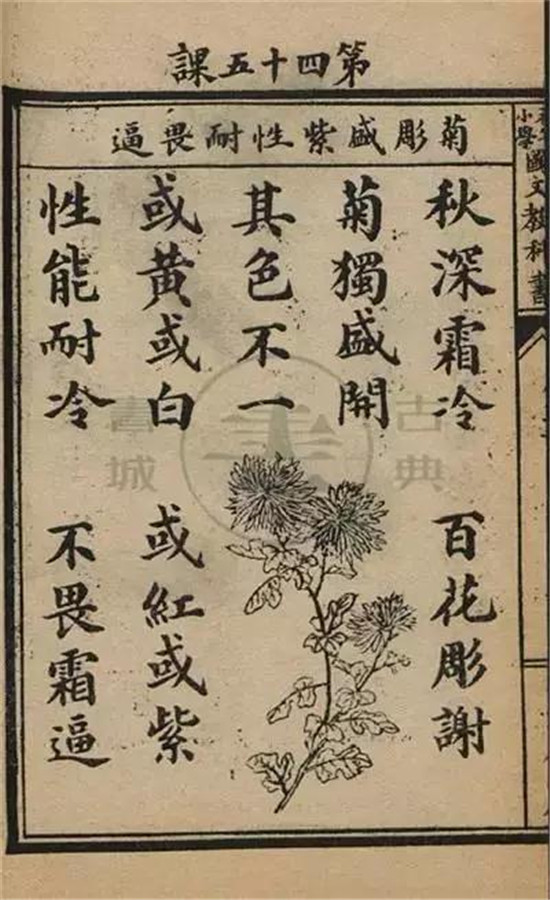 第四十五課
菊彫盛紫性耐畏逼
秋深霜冷 百花彫謝
菊獨盛開
其色不一
或黃或白 或紅或紫
性能耐冷 不畏霜逼
小學國文教科書
古典
書城